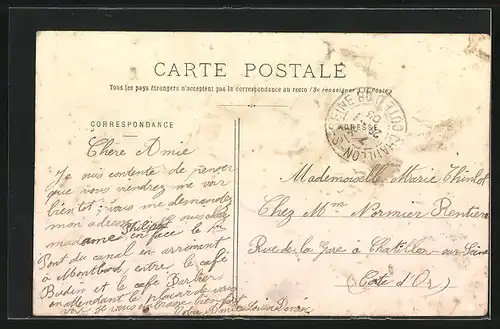 CARTE POSTALE
Tous les pays étrangers n'acceptent pas la correspondance au recto (Se renseigner à la Poste)
CORRESPONDANCE
ADRESSE
CHATILLON-S-SEINE
COTE D'OR
Chère Amie
Je suis contente de penser
que vous viendrez me voir
bientot; vous me demandez
mon adresse
madame Philippe en face le
Pont du canal en arrivant
à Montbard, entre le café
Budin et le café Barbier
en attendant le plaisir de vous
voir je vous embrasse bien fort
Votre Amie Louise
Mademoiselle Marie Thinlot
Chez Mme Normier Rentière
Rue de la Gare à Chatillon-sur-Seine
(Côte d'Or)